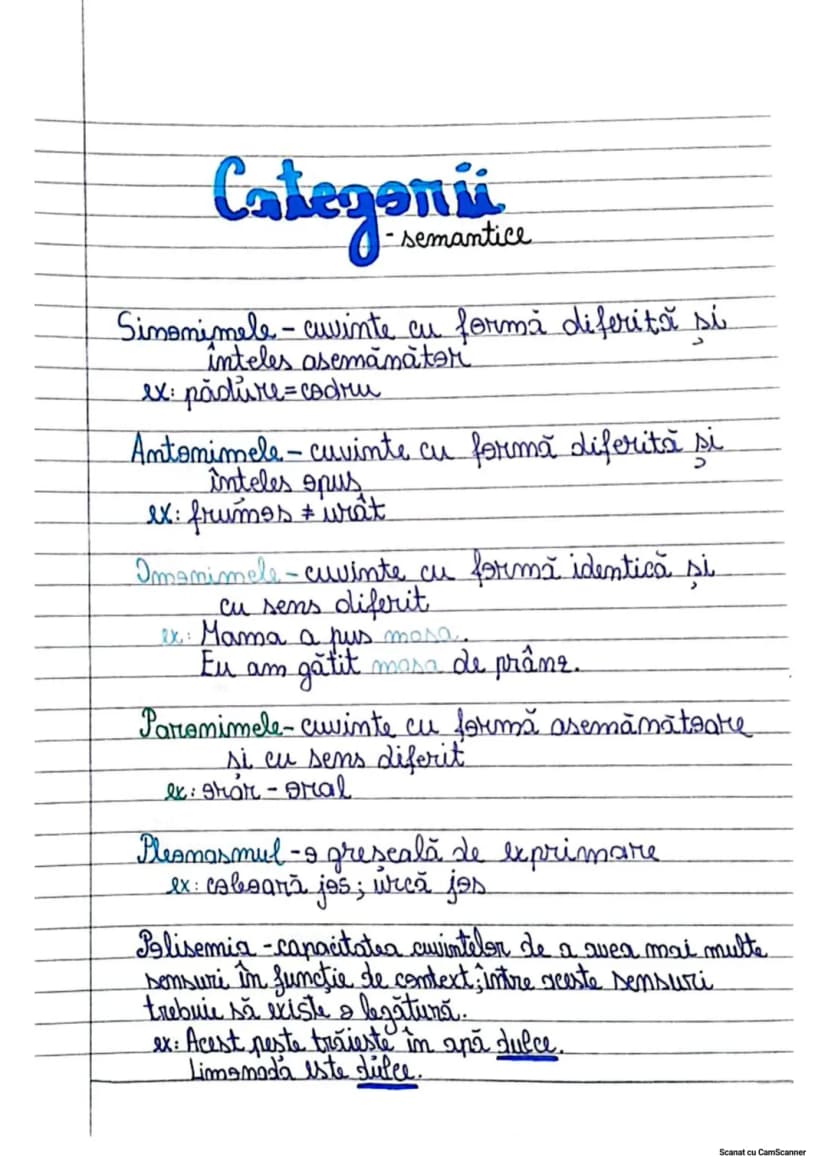 Categorii
- semantice
Sinonimele - cuvinte cu formă diferită și
înteles asemănător
ex: pădure = codru
Antonimele - cuvinte cu formă diferită și
înteles opus
ex: frumos ≠ urât
Omonimele - cuvinte cu formă identică și
cu sens diferit
ex: Mama a pus masa.
Eu am gătit masa de prânz.
Paronimele - cuvinte cu formă asemănătoare
si cu sens diferit
ex: orar - oral
Pleonasmul - o greseală de exprimare
ex: coboară jos; urcă jos
Polisemia - capacitatea cuvintelor de a avea mai multe
sensuri în funcție de context; între aceste sensuri
trebuie să existe o legătură.
ex: Acest peste trăieste în apă dulce.
Limonada este dulce.
Scanat cu CamScanner